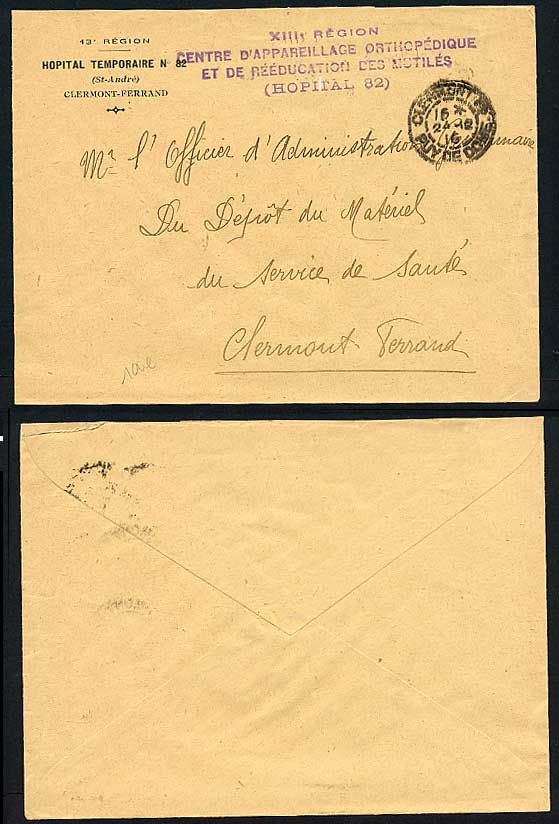 13ᵉ RÉGION
HOPITAL TEMPORAIRE Nᵒ 82
(St-André)
CLERMONT-FERRAND
XIIIᵉ RÉGION
CENTRE D'APPAREILLAGE ORTHOPÉDIQUE
ET DE RÉÉDUCATION DES MUTILÉS
(HOPITAL 82)
16 *
24-12
16
PUY DE DOME
Mʳ l'Officier d'Administration
Du Dépôt du Matériel
du Service de Santé
Clermont Ferrand
rare